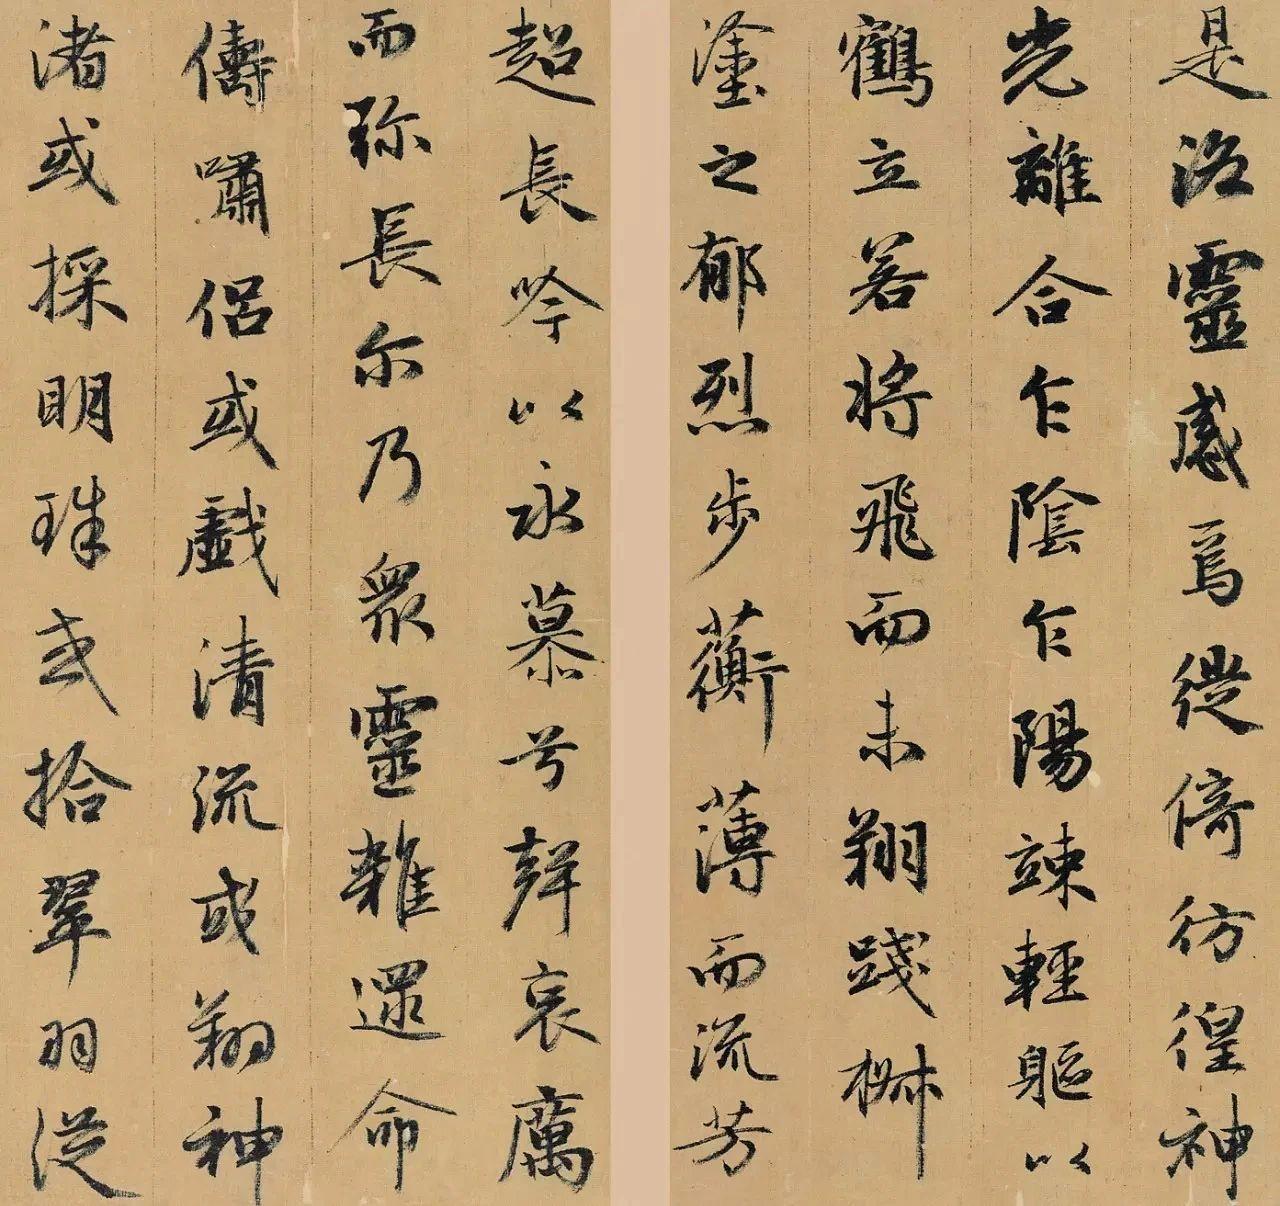 是洛靈感焉徙倚彷徨神
光離合乍陰乍陽竦輕軀以
鶴立若將飛而未翔踐椒
塗之郁烈步蘅薄而流芳
超長吟以永慕兮聲哀厲
而弥長尔乃眾靈雜遝命
儔嘯侶或戲清流或翔神
渚或採明珠或拾翠羽從